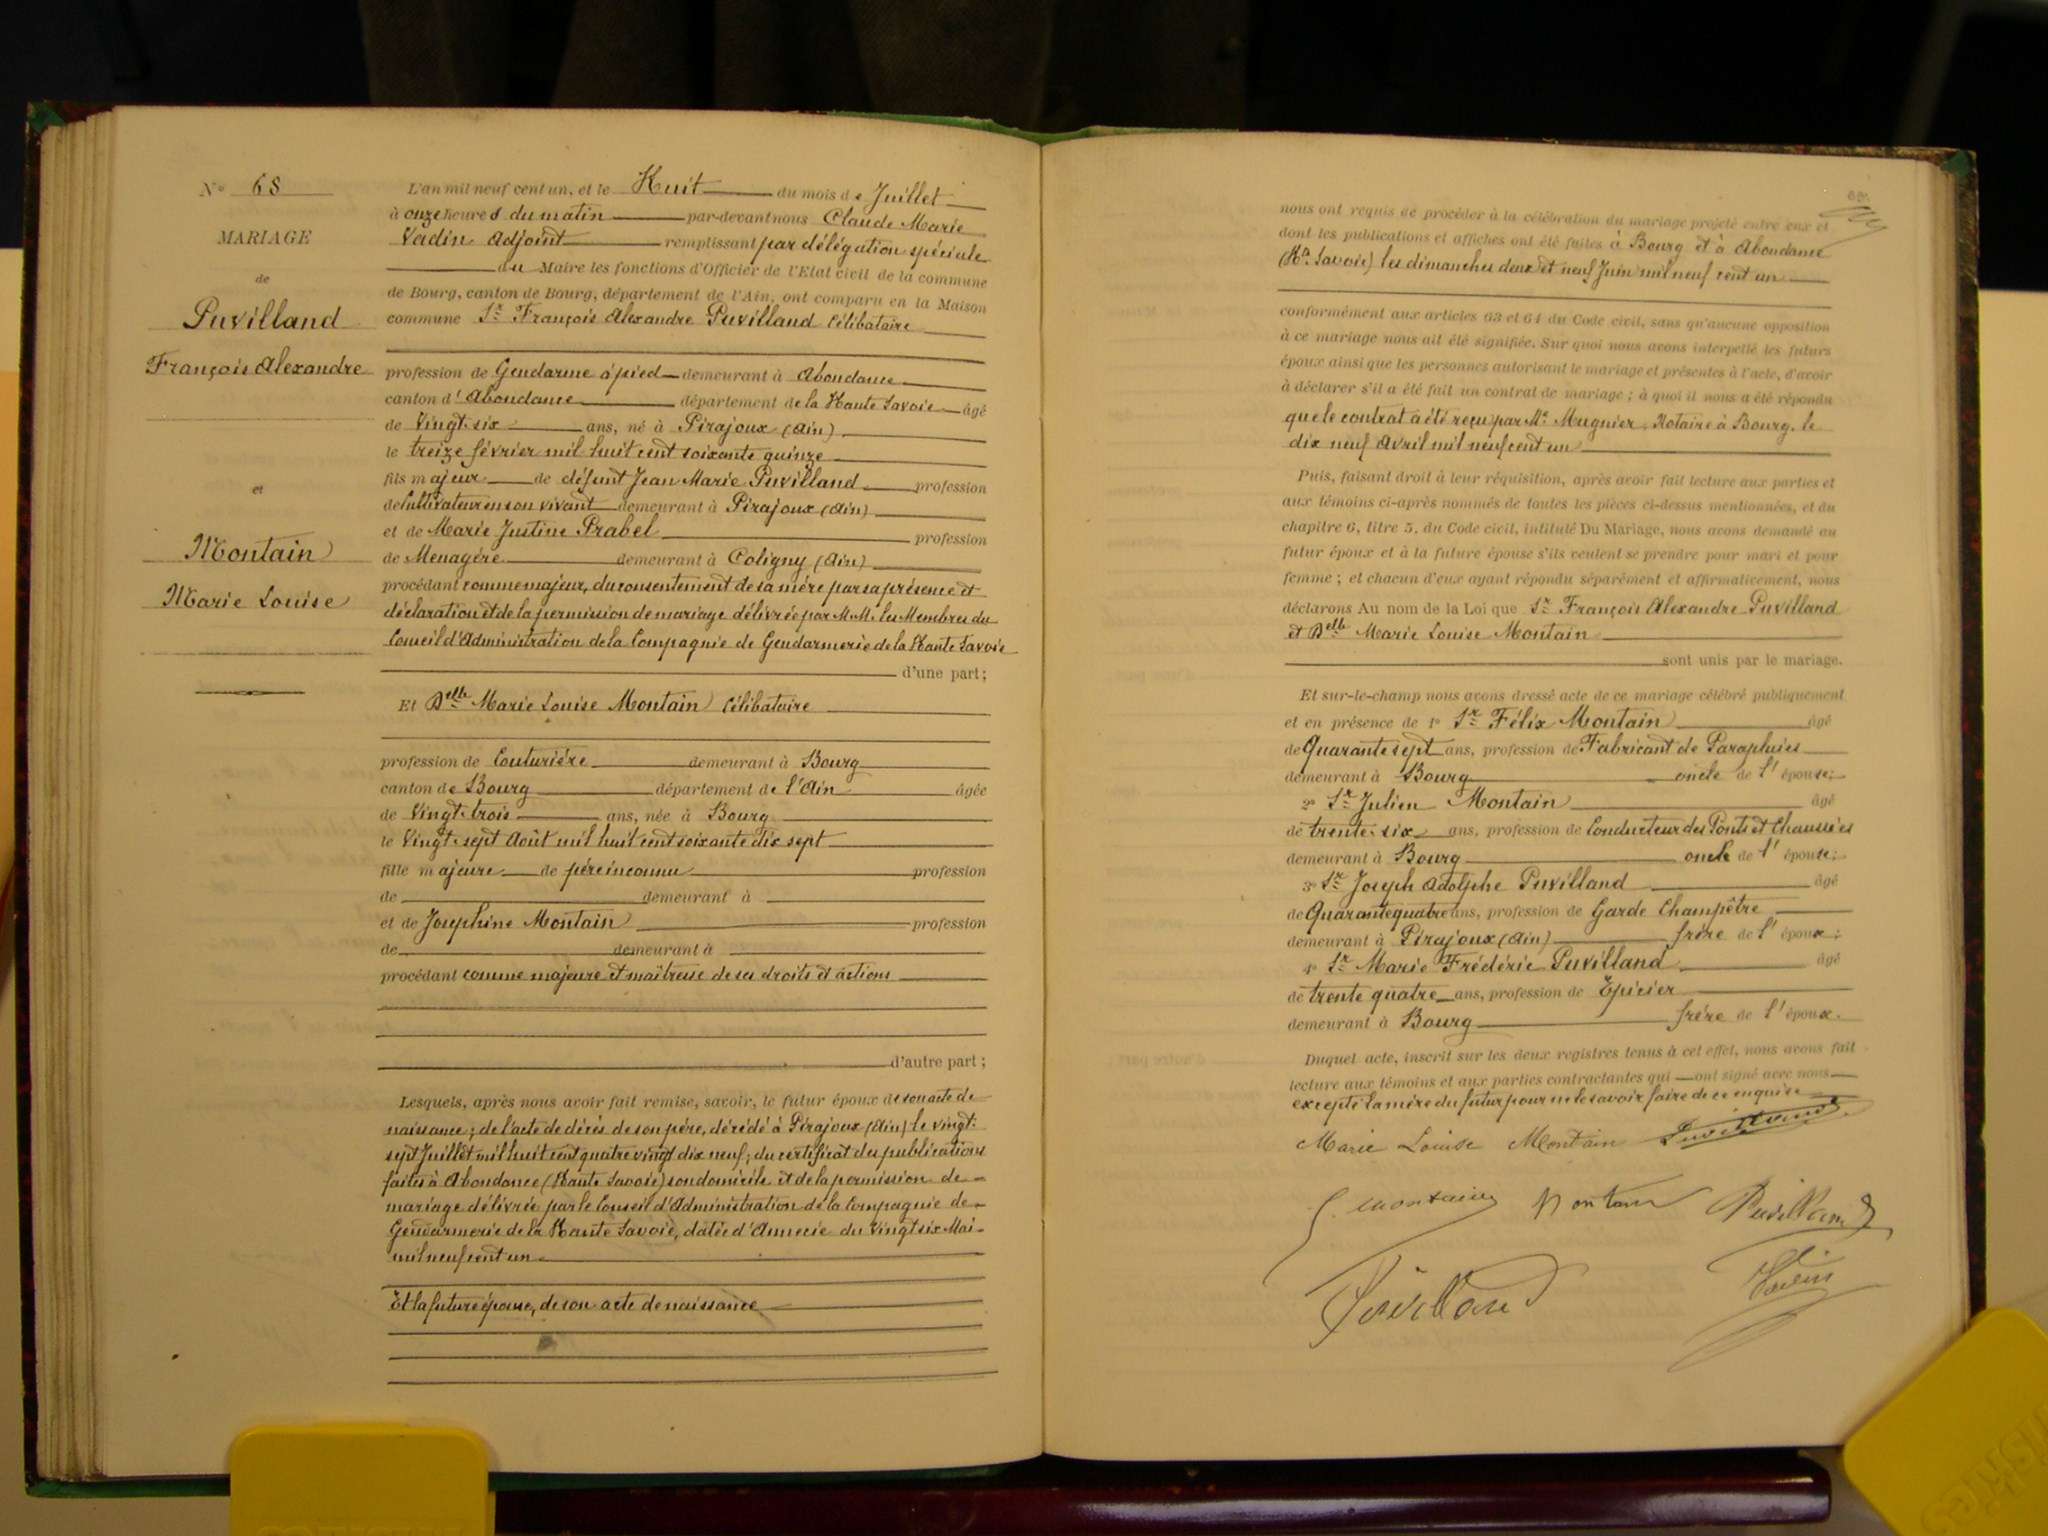 N° 68
MARIAGE
de
Puvilland
François Alexandre
et
Montain
Marie Louise
L'an mil neuf cent un, et le Huit du mois de Juillet
à onze heures du matin par-devant nous Claude Marie
Vadin Adjoint remplissant par délégation spéciale
du Maire les fonctions d'Officier de l'Etat civil de la commune
de Bourg, canton de Bourg, département de l'Ain, ont comparu en la Maison
commune Sr François Alexandre Puvilland célibataire
profession de Gendarme à pied demeurant à Abondance
canton d'Abondance département de la Haute Savoie âgé
de Vingt-six ans, né à Pirajoux (Ain)
le treize février mil huit cent soixante quinze
fils majeur de défunt Jean Marie Puvilland profession
de Cultivateur en son vivant demeurant à Pirajoux (Ain)
et de Marie Justine Prabel profession
de Menagère demeurant à Coligny (Ain)
procédant comme majeur, du consentement de sa mère par sa présence et
déclaration et de la permission de mariage délivrée par M.M. les Membres du
Conseil d'Administration de la Compagnie de Gendarmerie de la Haute Savoie
d'une part;
Et Delle Marie Louise Montain célibataire
profession de Couturière demeurant à Bourg
canton de Bourg département de l'Ain âgée
de Vingt-trois ans, née à Bourg
le Vingt-sept Août mil huit cent soixante dix sept
fille majeure de père inconnu profession
de demeurant à
et de Joséphine Montain profession
de demeurant à
procédant comme majeure et maîtresse de ses droits et actions
d'autre part;
Lesquels, après nous avoir fait remise, savoir, le futur époux de son acte de
naissance; de l'acte de décès de son père, décédé à Pirajoux (Ain) le vingt-
sept Juillet mil huit cent quatre vingt dix neuf; du certificat des publications
faites à Abondance (Haute Savoie) son domicile et de la permission de
mariage délivrée par le Conseil d'Administration de la Compagnie de
Gendarmerie de la Haute Savoie, datée d'Annecie du Vingt six Mai
mil neuf cent un
Et la future épouse, de son acte de naissance
nous ont requis de procéder à la célébration du mariage projeté entre eux et
dont les publications et affiches ont été faites à Bourg et à Abondance
(Hte Savoie) les dimanches deux et neuf Juin mil neuf cent un
conformément aux articles 63 et 64 du Code civil, sans qu'aucune opposition
à ce mariage nous ait été signifiée. Sur quoi nous avons interpellé les futurs
époux ainsi que les personnes autorisant le mariage et présentes à l'acte, d'avoir
à déclarer s'il a été fait un contrat de mariage; à quoi il nous a été répondu
que le contrat a été reçu par Me Mugnier, Notaire à Bourg, le
dix neuf Avril mil neuf cent un
Puis, faisant droit à leur réquisition, après avoir fait lecture aux parties et
aux témoins ci-après nommés de toutes les pièces ci-dessus mentionnées, et du
chapitre 6, titre 5, du Code civil, intitulé Du Mariage, nous avons demandé au
futur époux et à la future épouse s'ils veulent se prendre pour mari et pour
femme; et chacun d'eux ayant répondu séparément et affirmativement, nous
déclarons Au nom de la Loi que Sr François Alexandre Puvilland
et Delle Marie Louise Montain
sont unis par le mariage.
Et sur-le-champ nous avons dressé acte de ce mariage célébré publiquement
et en présence de 1° Sr Félix Montain âgé
de Quarante sept ans, profession de Fabricant de Parapluies
demeurant à Bourg oncle de l'épouse;
2° Sr Julien Montain âgé
de trente-six ans, profession de Conducteur des Ponts et Chaussées
demeurant à Bourg oncle de l'épouse;
3° Sr Joseph Adolphe Puvilland âgé
de Quarante quatre ans, profession de Garde Champêtre
demeurant à Pirajoux (Ain) frère de l'époux;
4° Sr Marie Frédéric Puvilland âgé
de trente quatre ans, profession de Epicier
demeurant à Bourg frère de l'époux.
Duquel acte, inscrit sur les deux registres tenus à cet effet, nous avons fait
lecture aux témoins et aux parties contractantes qui ont signé avec nous
excepté la mère du futur pour ne le savoir faire de ce enquise
Marie Louise Montain Puvilland
Montain Montain Puvilland
Puvilland Vadin